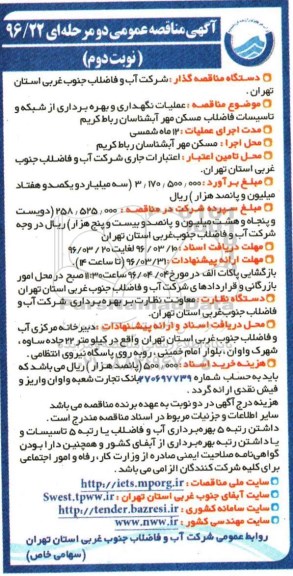 آگهی مناقصه عمومی دو مرحله‌ای ۹۶/۲۲
(نوبت دوم)
دستگاه مناقصه گذار : شرکت آب و فاضلاب جنوب غربی استان
تهران .
موضوع مناقصه : عملیات نگهداری و بهره برداری از شبکه و
تاسیسات فاضلاب مسکن مهر آبشناسان رباط کریم
مدت اجرای عملیات : ۱۲ ماه شمسی
محل اجرا : مسکن مهر آبشناسان رباط کریم
محل تامین اعتبار : اعتبارات جاری شرکت آب و فاضلاب جنوب
غربی استان تهران.
مبلغ برآورد : ۳,۱۷۰,۵۰۰,۰۰۰ (سه میلیارد و یکصد و هفتاد
میلیون و پانصد هزار) ریال
مبلغ سپرده شرکت در مناقصه : ۲۵۸,۵۲۵,۰۰۰ (دویست
و پنجاه و هشت میلیون و پانصد و بیست و پنج هزار) ریال در وجه
شرکت آب و فاضلاب جنوب غربی استان تهران
مهلت دریافت اسناد : ۹۶/۰۳/۱۰ لغایت ۹۶/۰۳/۲۰
مهلت ارائه پیشنهادات : ۹۶/۰۳/۳۱ (تا ساعت ۱۴).
بازگشایی پاکات الف در مورخ ۹۶/۰۴/۰۴ ساعت ۱۱:۳۰ صبح در محل امور
بازرگانی و قراردادهای شرکت آب و فاضلاب جنوب غربی استان تهران
دستگاه نظارت : معاونت نظارت بر بهره برداری شرکت آب و
فاضلاب جنوب غربی استان تهران.
محل دریافت اسناد و ارائه پیشنهادات : دبیرخانه مرکزی آب
و فاضلاب جنوب غربی استان تهران واقع در کیلومتر ۲۲ جاده ساوه ،
شهرک واوان ، بلوار امام خمینی ، روبه روی پاسگاه نیروی انتظامی .
هزینه خرید اسناد : ۵۰۰,۰۰۰ (پانصد هزار) ریال می باشد که
باید به حساب شماره ۲۷۰۶۹۷۷۳۹ بانک تجارت شعبه واوان واریز و
فیش نقدی ارائه گردد .
هزینه درج آگهی در دو نوبت به عهده برنده مناقصه می‌باشد
سایر اطلاعات و جزئیات مربوط در اسناد مناقصه مندرج است .
داشتن رتبه ۵ بهره‌برداری آب و فاضلاب یا رتبه ۵ تاسیسات و
یا داشتن رتبه بهره‌برداری از آبفای کشور و همچنین دارا بودن
گواهی‌نامه صلاحیت ایمنی صادره از وزارت کار، رفاه و امور اجتماعی
برای کلیه شرکت کنندگان الزامی می باشد .
سایت ملی مناقصات : http://iets.mporg.ir
سایت آبفای جنوب غربی استان تهران : Swest.tpww.ir
سایت سامانه کشوری : http://tender.bazresi.ir
سایت مهندسی کشور : www.nww.ir
روابط عمومی شرکت آب و فاضلاب جنوب غربی استان تهران
(سهامی خاص)